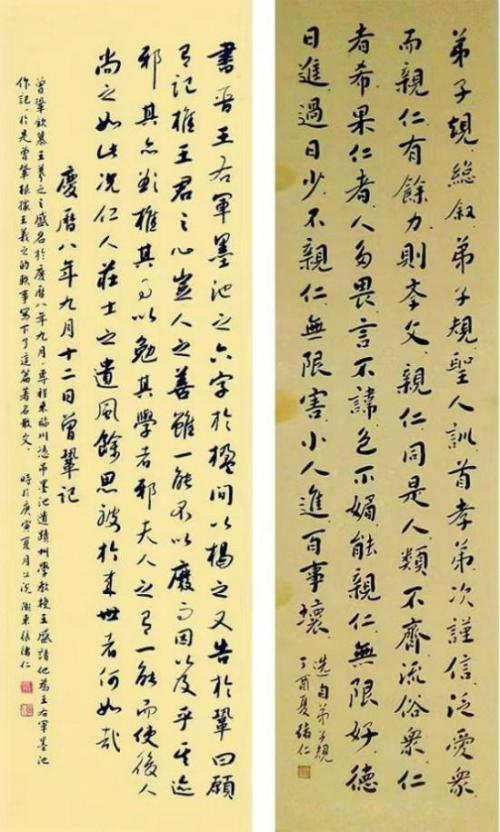 弟子規總叙弟子規聖人訓首孝弟次謹信泛愛衆
而親仁有餘力則孝父親仁同是人類不齊流俗衆仁
者希果仁者人多畏言不諱色不媚能親仁無限好德
日進過日少不親仁無限害小人進百事壞
選自弟子規
丁酉夏緒仁
書晉王右軍墨池之六字於楹間以揭之又告於鞏曰願
有記推王君之心豈人之善雖一能不以廢而因以及乎其迹
邪其亦欲推其事以勉其學者邪夫人之有一能而使後人
尚之如此況仁人莊士之遺風餘思被於來世者何如哉
慶曆八年九月十二日曾鞏記
曾鞏欽慕王羲之之盛名於慶曆八年九月專程來臨川憑吊墨池遺蹟州學教授王盛請他為王右軍墨池
作記於是曾鞏根據王羲之的軼事寫下了這篇著名散文 時於庚寅夏月緒仁